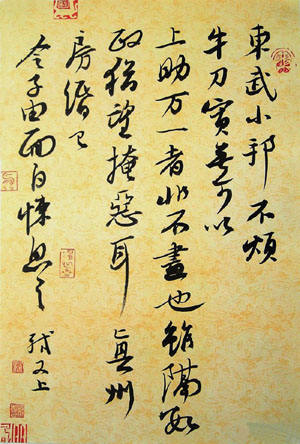 東武小邦不煩
牛刀實無可以
上助万一者非不盡也雖隔數
政猶望掩惡耳真州
房緡已
令子由面白悚息
軾又上